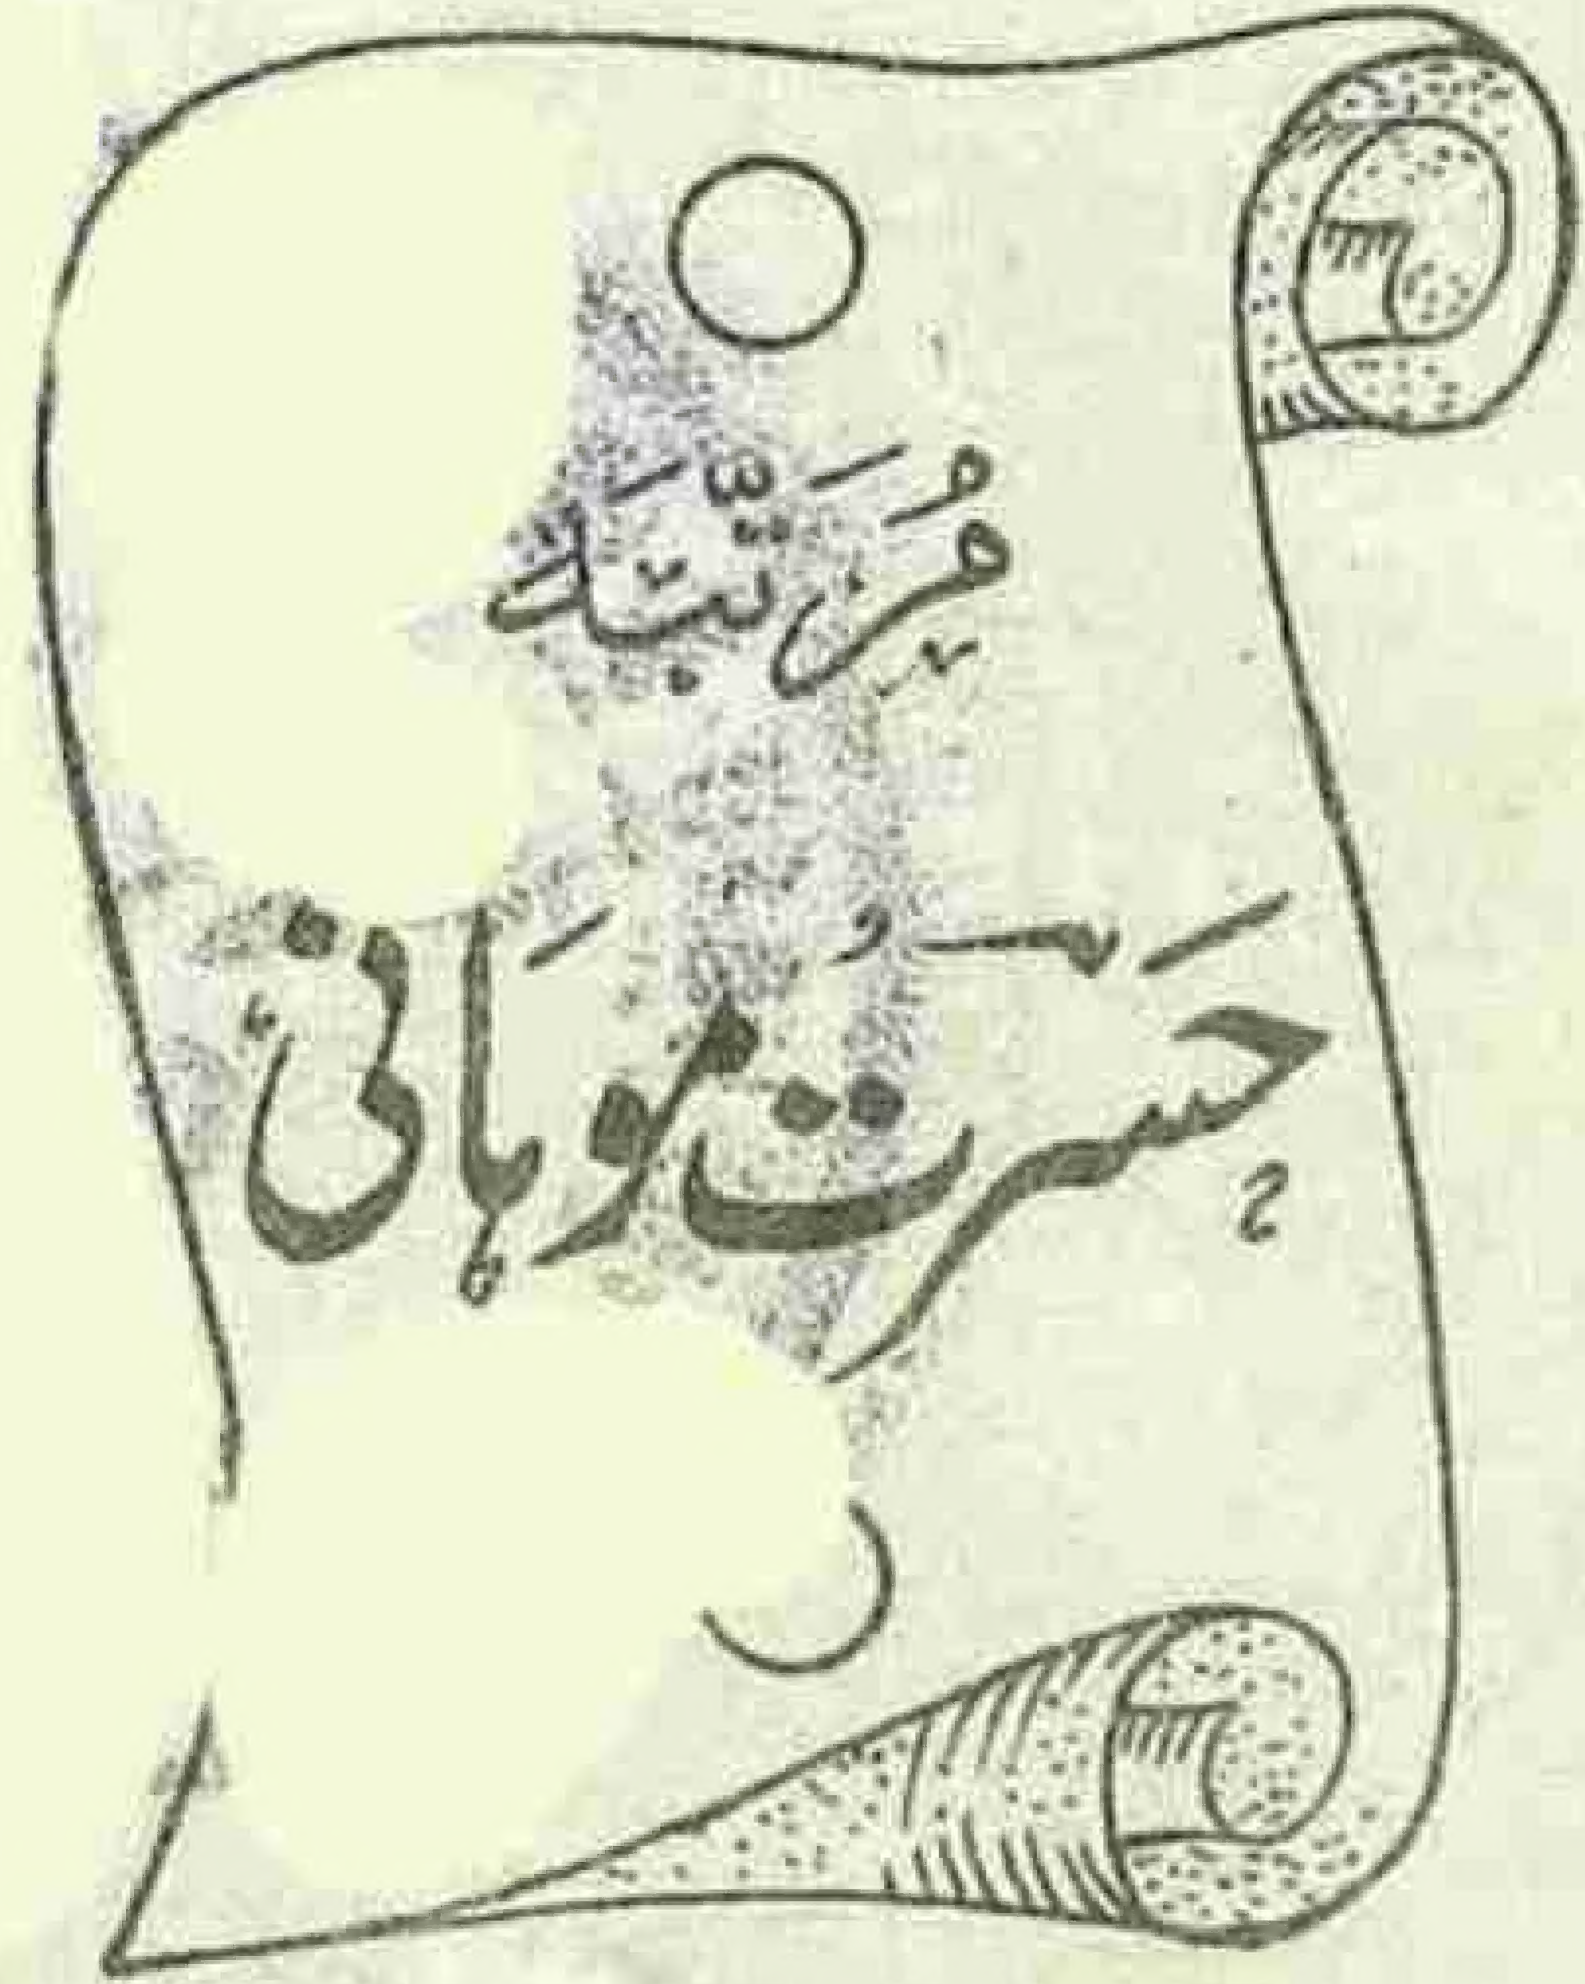 مُرَتَّبَہ
حَسْرَت مُوہَانی